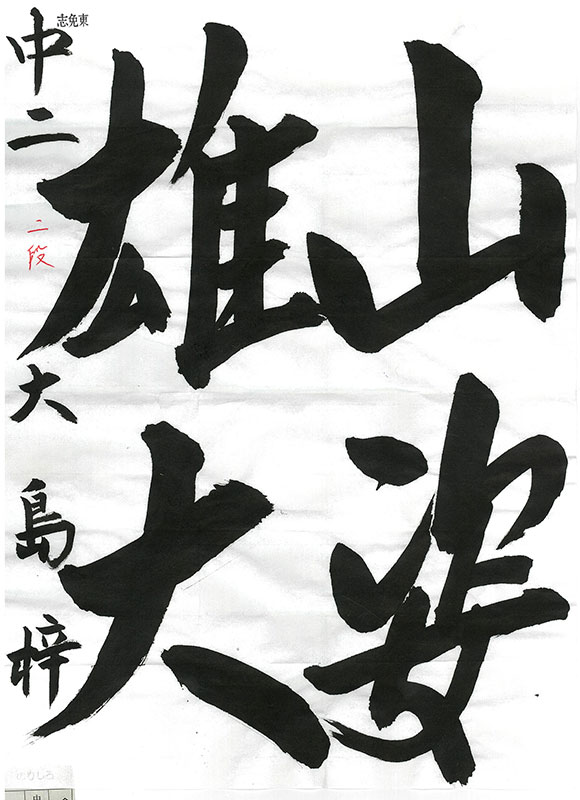 山姿
雄大
東免志
中二 大島梓
二段